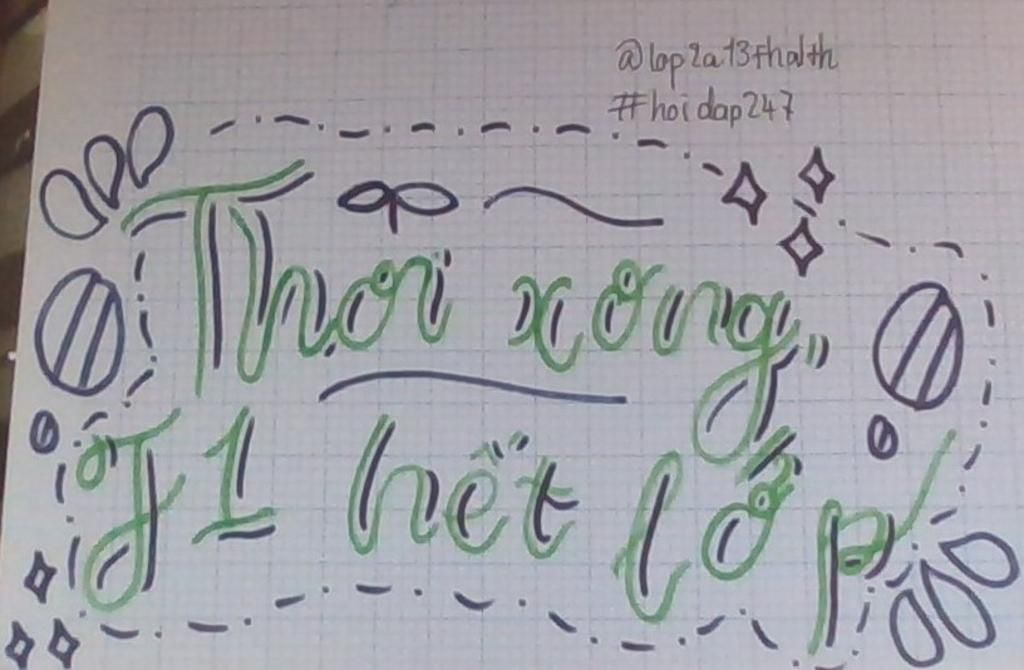 @lop2a13thalth
#hoidap247
Thôi xong,
J1 hết lớp